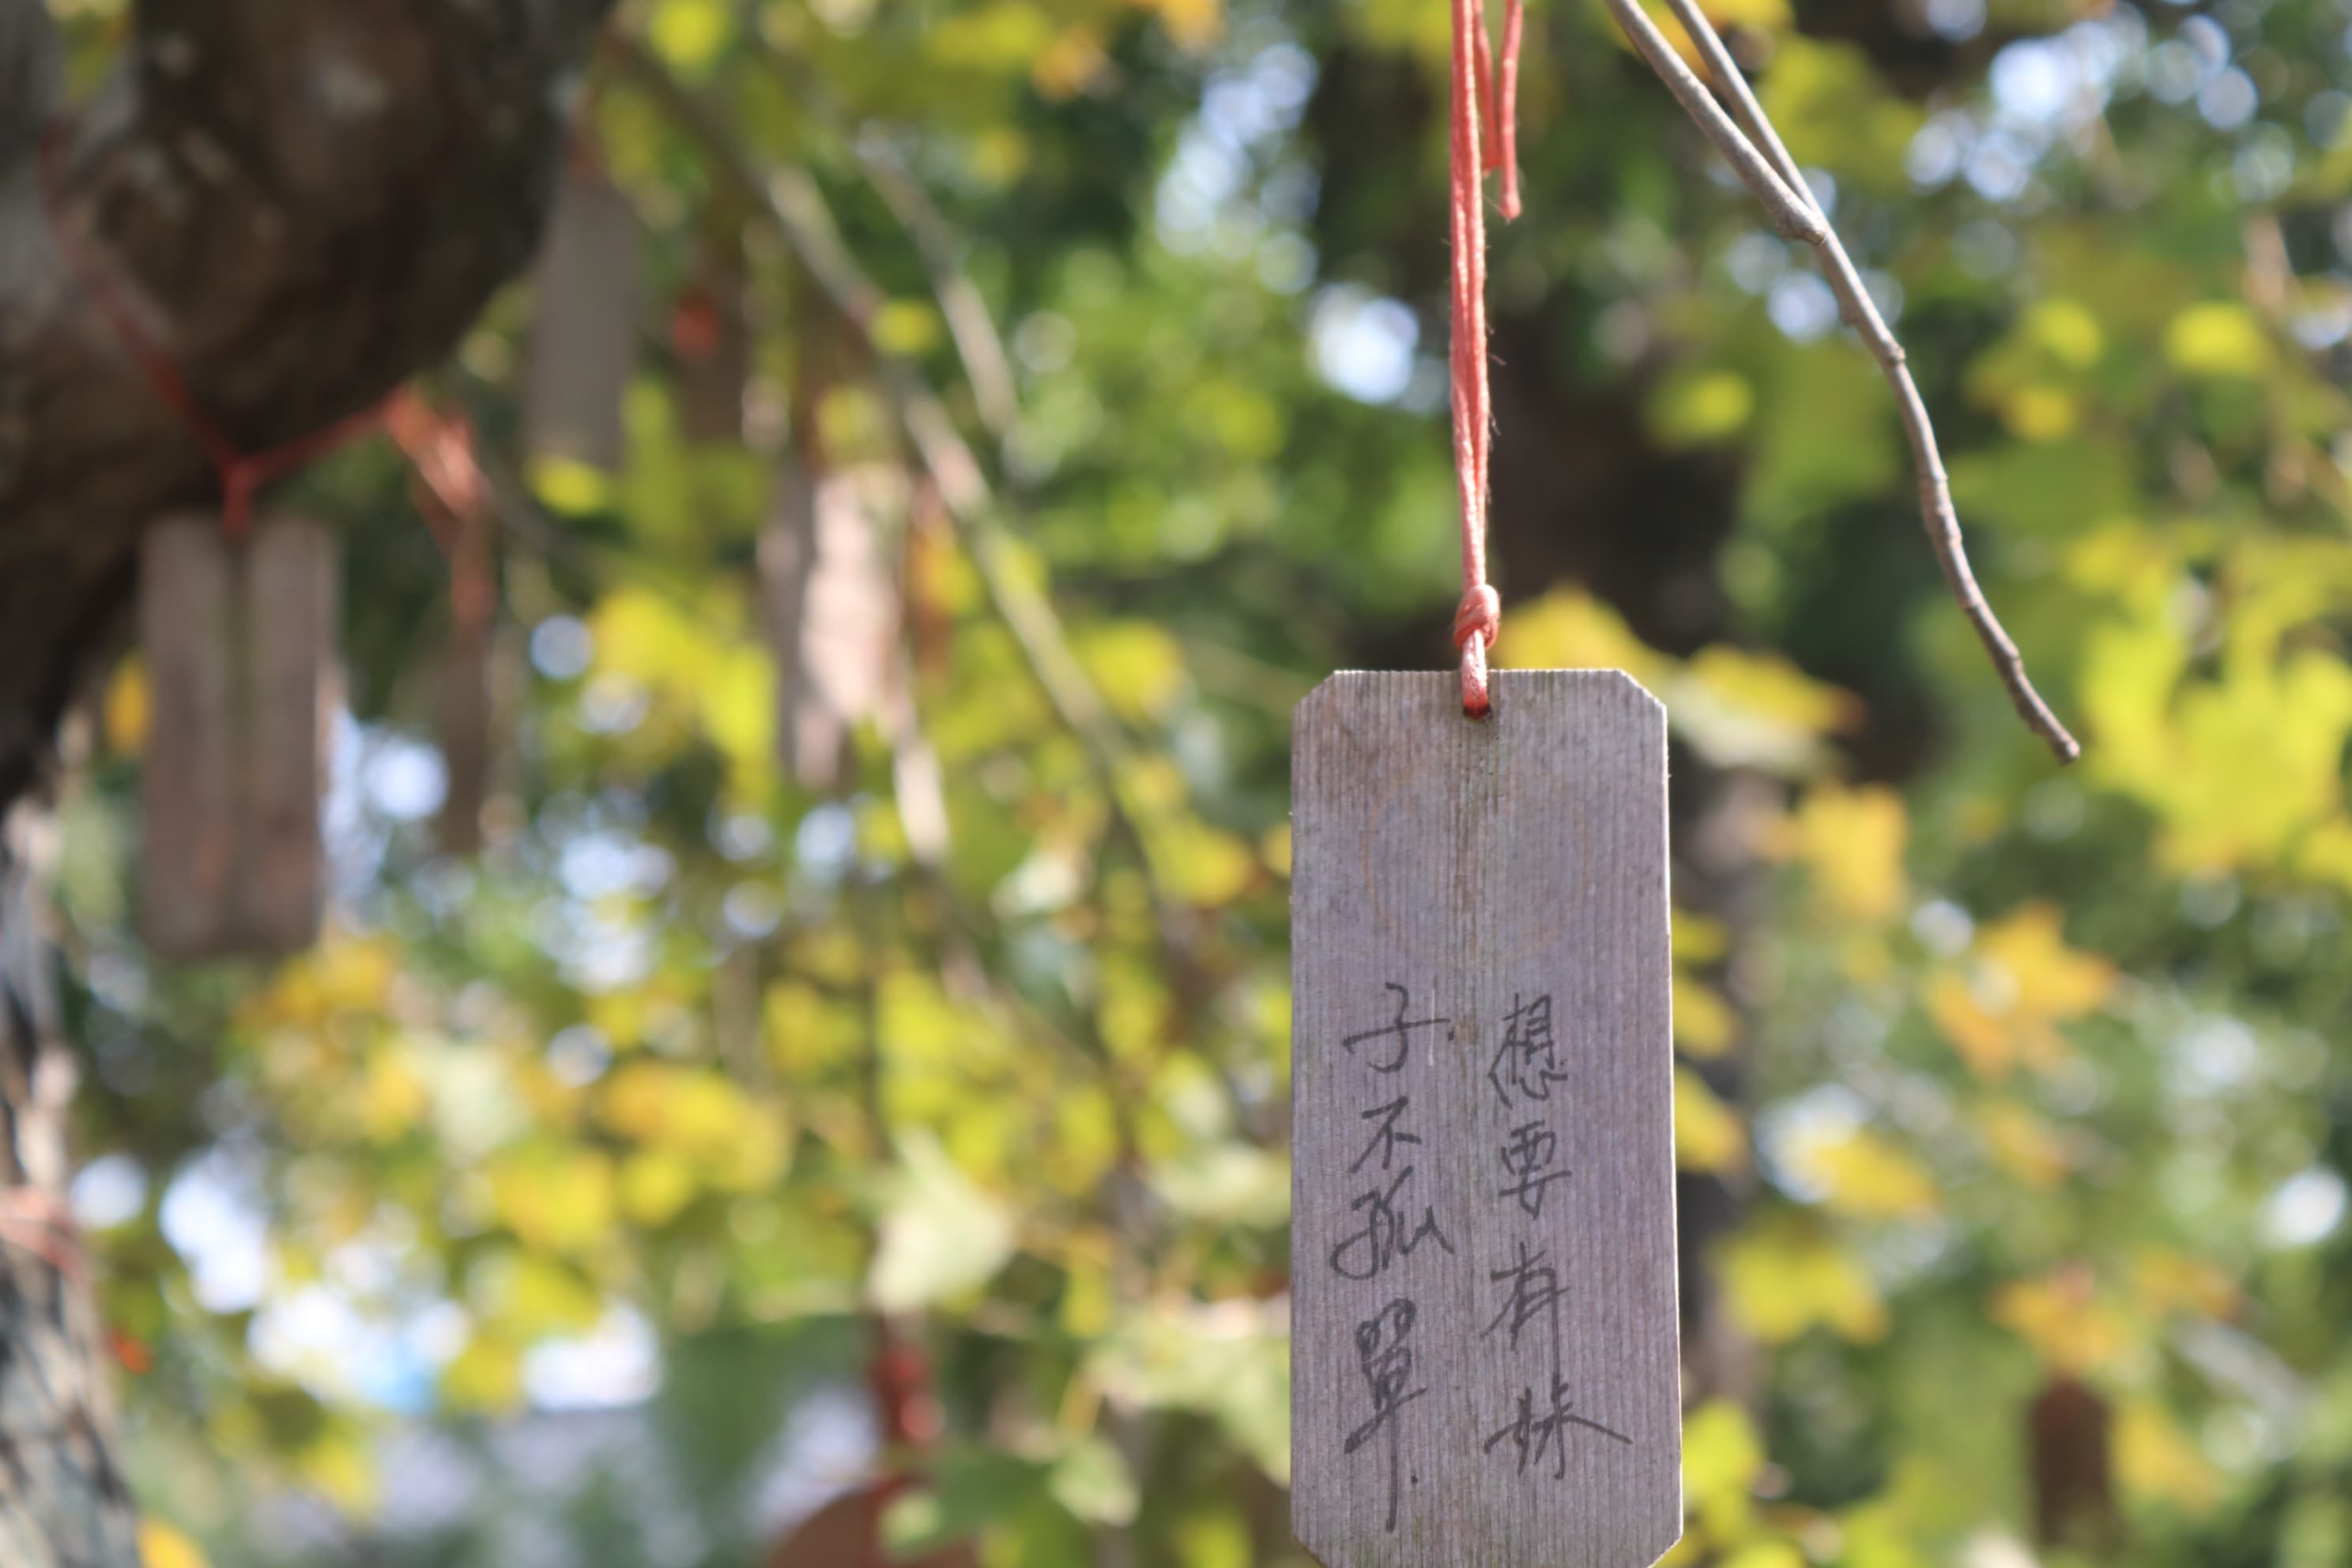 想要有妹
子不孤單.